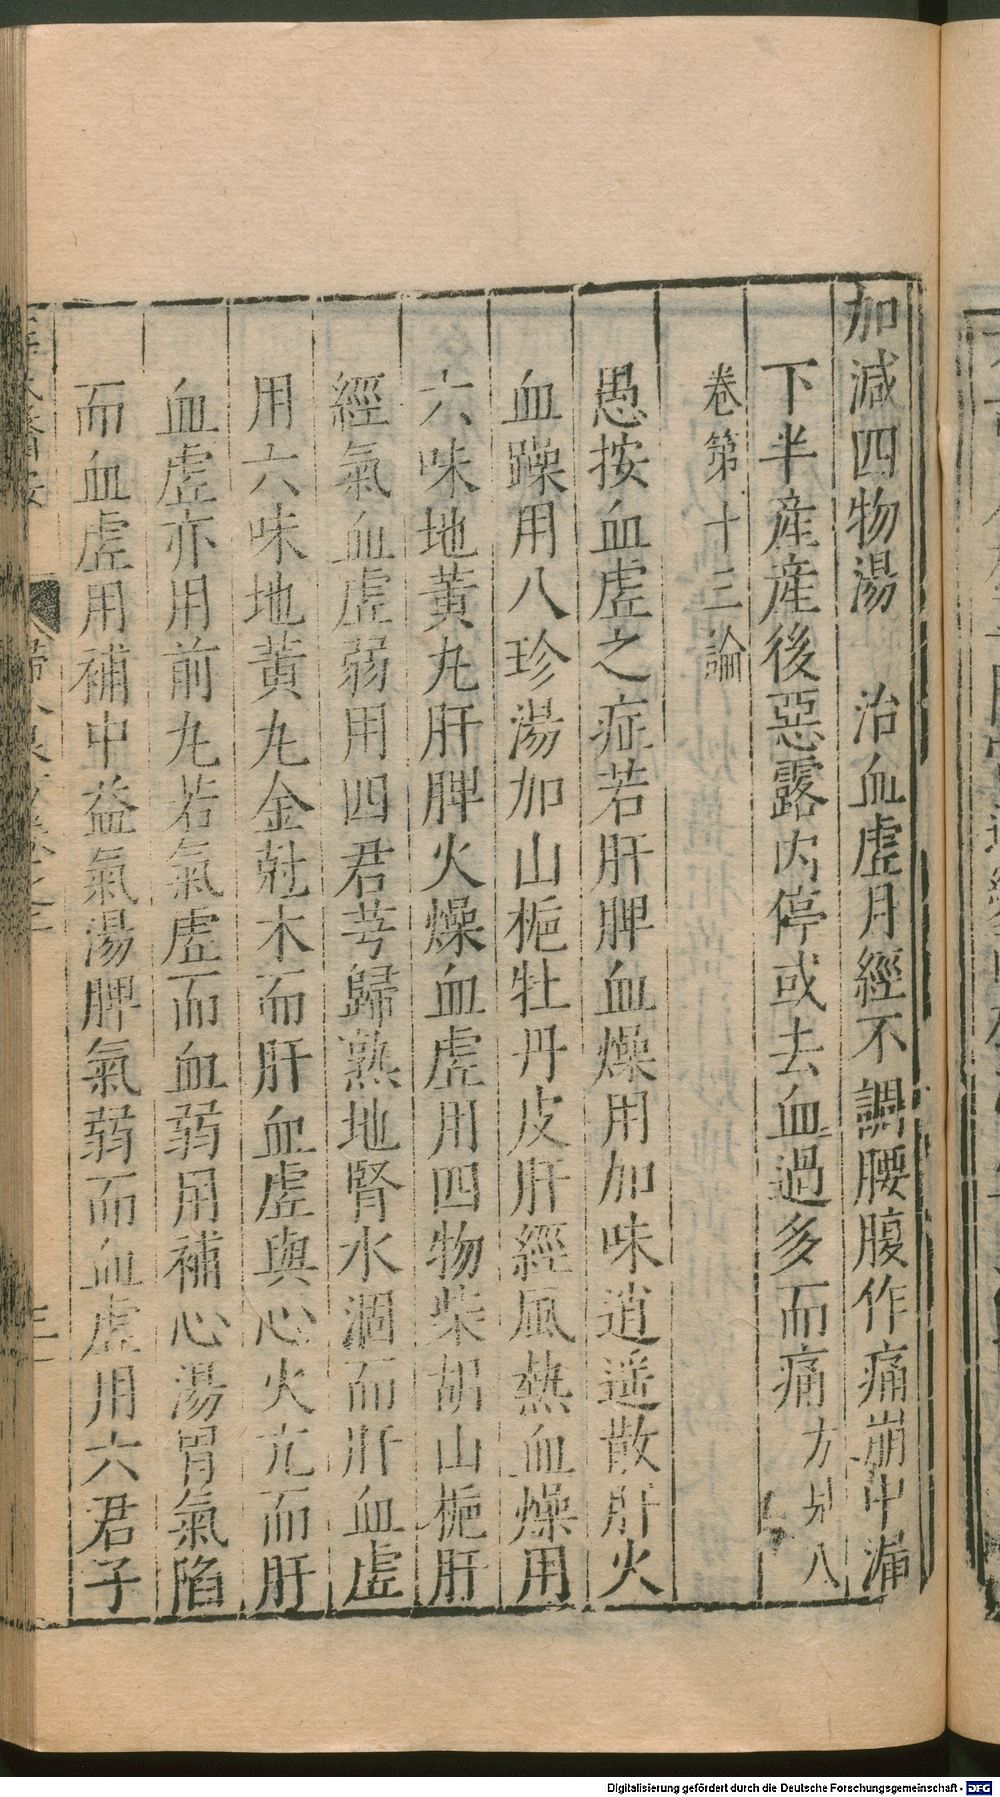 加減四物湯　治血虛月經不調腰腹作痛崩中漏
下半産産後惡露内停或去血過多而痛方見八
卷第十三論
愚按血虛之症若肝脾血燥用加味逍遥散肝火
血躁用八珍湯加山梔牡丹皮肝經風熱血燥用
六味地黃丸肝脾火燥血虛用四物柴胡山梔肝
經氣血虛弱用四君芎歸熟地腎水涸而肝血虛
用六味地黃丸金尅木而肝血虛與心火亢而肝
血虛亦用前丸若氣虛而血弱用補心湯胃氣陷
而血虛用補中益氣湯脾氣弱而血虛用六君子
Digitalisierung gefördert durch die Deutsche Forschungsgemeinschaft - DFG